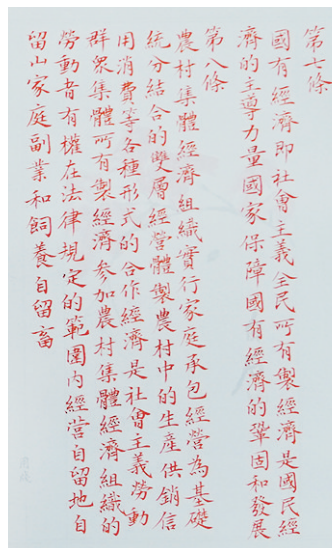 第七條
國有經濟即社會主義全民所有製經濟是國民經
濟的主導力量國家保障國有經濟的鞏固和發展
第八條
農村集體經濟組織實行家庭承包經營為基礎
統分結合的雙層經營體製農村中的生產供銷信
用消費等各種形式的合作經濟是社會主義勞動
群眾集體所有製經濟參加農村集體經濟組織的
勞動者有權在法律規定的範圍內經營自留地自
留山家庭副業和飼養自留畜